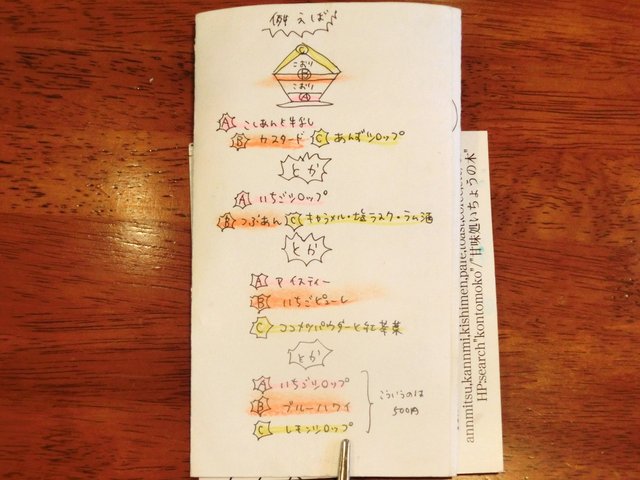 例えば
C
こおり
B
こおり
A
A こしあんと牛乳
B カスタード C あんずシロップ
とか
A いちごシロップ
B つぶあん C キャラメル・塩ラスク・ラム酒
とか
A アイスティー
B いちごピューレ
C ココナツパウダーと紅茶葉
とか
A いちごシロップ
B ブルーハワイ
C レモンシロップ
こういうのは
500円
annmitsu,kannmi,kishimen,pafe,toast,
HP:search"kontomoko"/"甘味処いちょうの木"